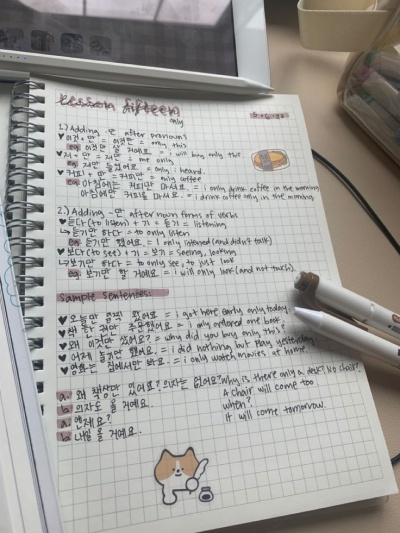 lesson fifteen
only
1.) Adding -만 after pronouns
♥ 이것 + 만 = 이것만 = only this
eg. 이것만 살 거예요. = i will buy only this
♥ 저 + 만 = 저만 = me only
eg. 저만 들었어요. = only i heard.
♥ 커피 + 만 = 커피만 = only coffee
eg. 아침에는 커피만 마셔요. = i only drink coffee in the morning
아침에만 커피 마셔요. = i drink coffee only in the morning
2.) Adding -만 after noun forms of verbs
♥ 듣다 (to listen) + 기 = 듣기 = listening
↳ 듣기만 하다 = to only listen
eg. 듣기만 했어요. = i only listened (and didn't talk)
♥ 보다 (to see) + 기 = 보기 = seeing, looking
↳ 보기만 하다 = to only see, to just look
eg. 보기만 할 거예요. = i will only look (and not touch)
Sample Sentences:
♥ 오늘만 일찍 왔어요 = i got here early only today.
♥ 책 한 권만 주문했어요 = i only ordered one book.
♥ 왜 이것만 샀어요? = why did you buy only this?
♥ 어제 놀기만 했어요. = i did nothing but play yesterday.
♥ 영화는 집에서만 봐요. = i only watch movies at home.
a. 왜 책상만 있어요? 의자는 없어요? Why is there only a desk? No chair?
b. 의자도 올 거예요. A chair will come too
a. 언제요? when?
b. 내일 올 거예요. it will come tomorrow.